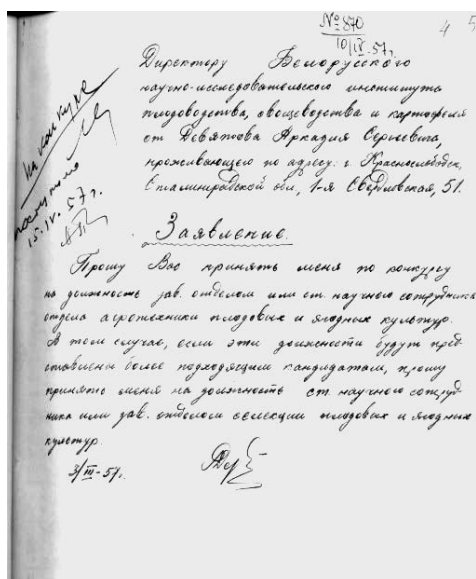 № 870
10/IV-57г.
4 5
Директору Белорусского
научно-исследовательского института
плодоводства, овощеводства и картофеля
от Девятова Аркадия Сергеевича,
проживающего по адресу: г. Краснослободск,
Сталинградской обл., 1-я Свердловская, 51.
На конкурс
поступило
15.IV.57г.
Заявление.
Прошу Вас принять меня по конкурсу
на должность зав. отделом или ст. научного сотрудника
отдела агротехники плодовых и ягодных культур.
В том случае, если эти должности будут пред
ставлены более подходящим кандидатам, прошу
принять меня на должность ст. научного сотруд
ника или зав. отделом селекции плодовых и ягодных
культур.
3/III-57г.